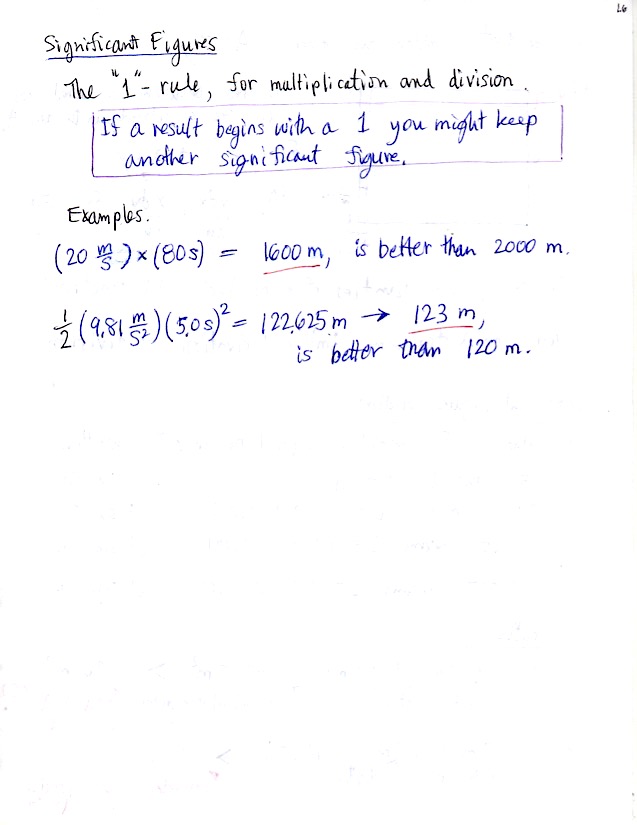 L6
Significant Figures
The "1"- rule, for multiplication and division.
If a result begins with a 1 you might keep
another significant figure.
Examples.
(20 m/s) × (80 s) = 1600 m, is better than 2000 m.
1/2 (9.81 m/s²)(5.0 s)² = 122.625 m → 123 m,
is better than 120 m.